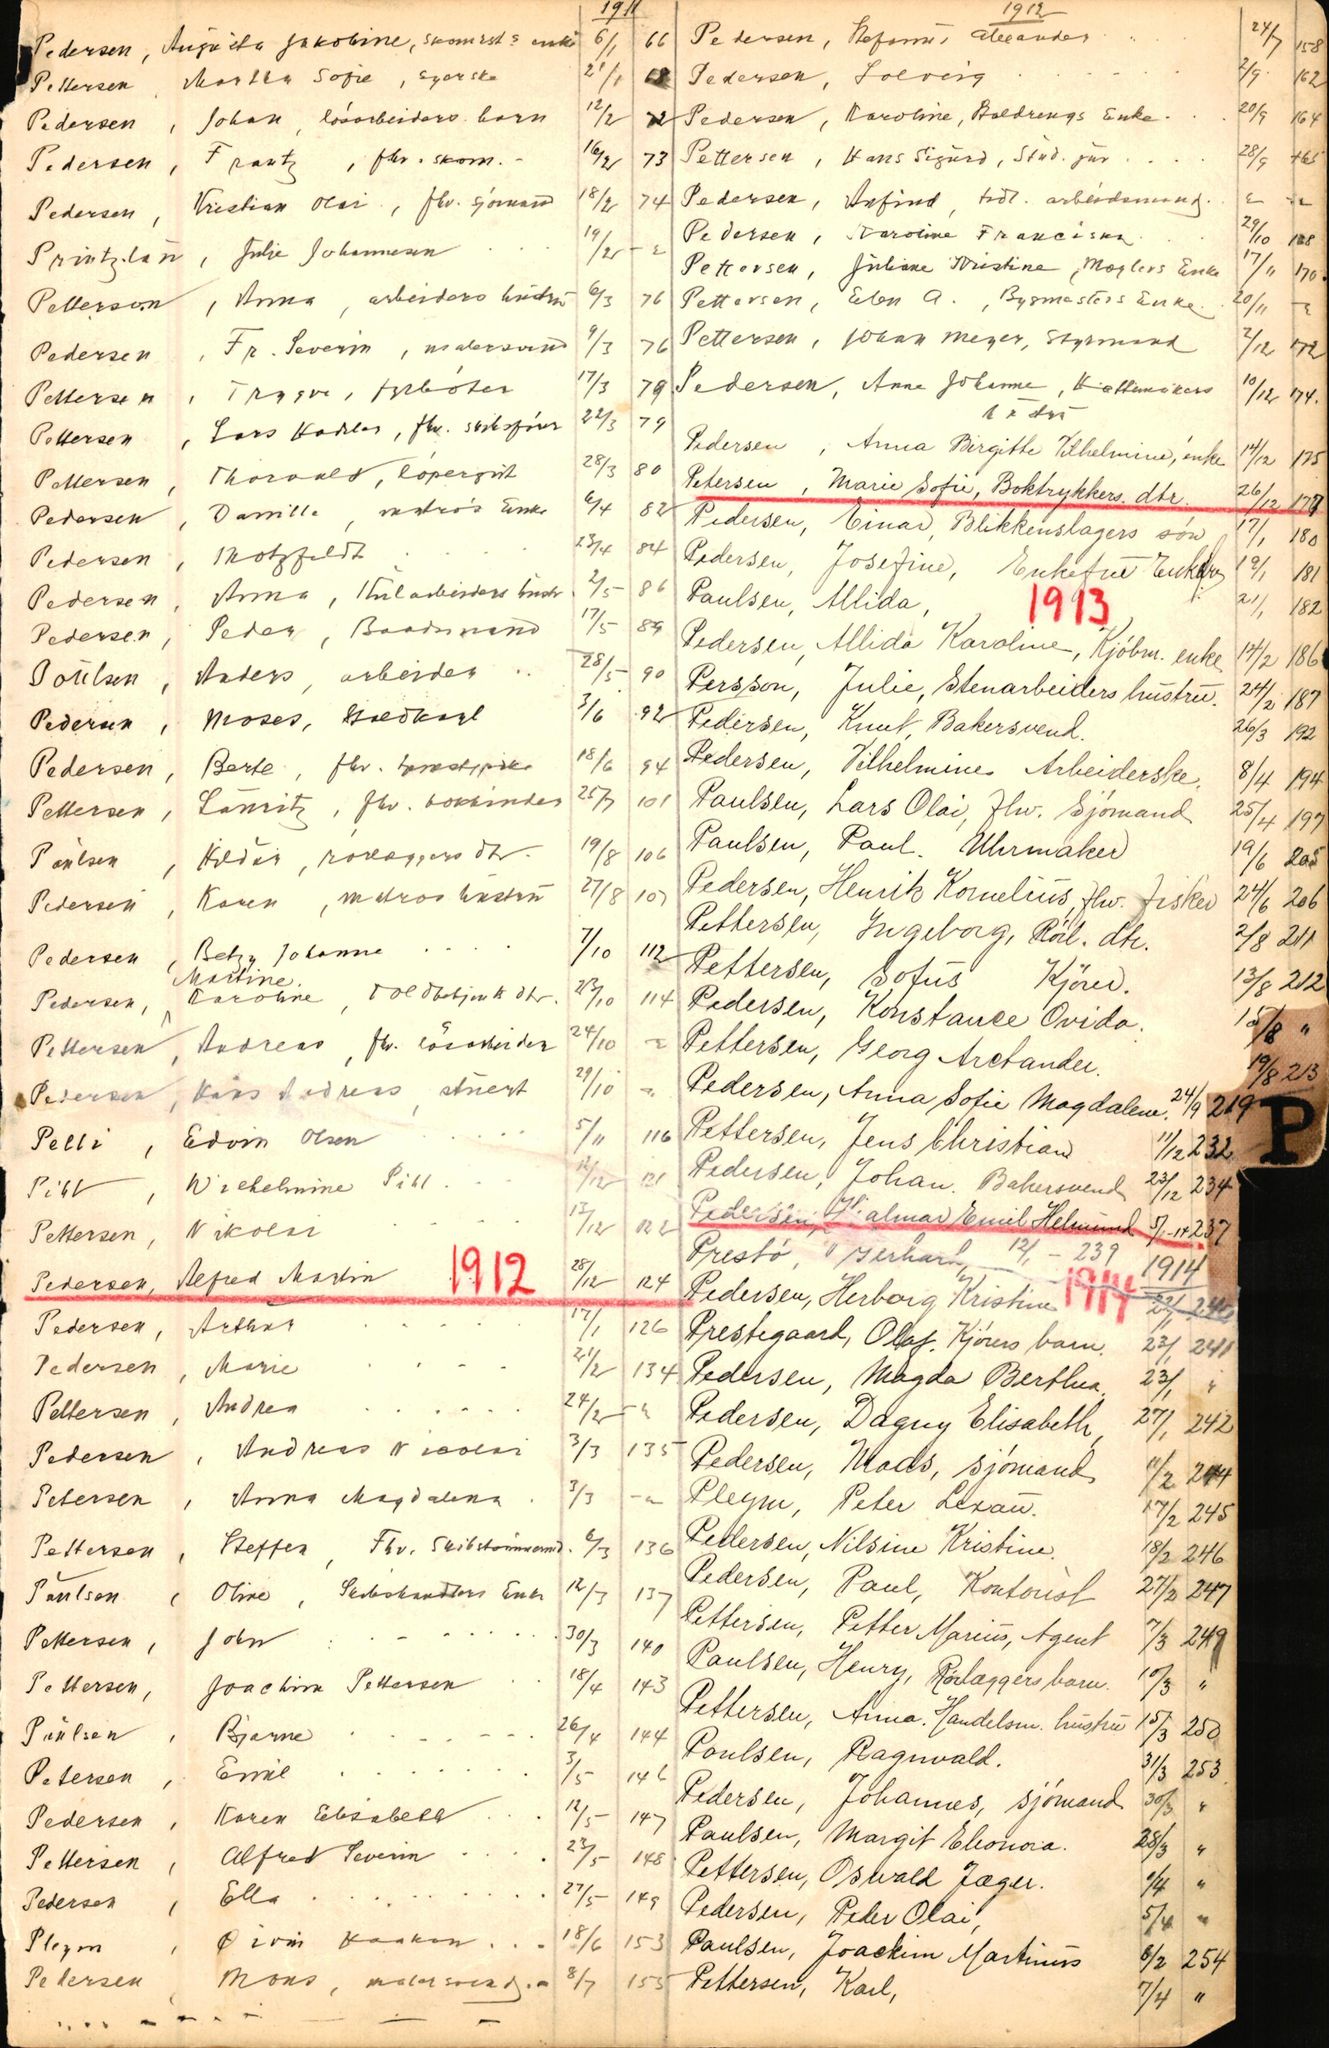 1911
Pedersen, Augusta Jakobine, skomst.s enke 6/1 66
Pettersen, Martha Sofie, syerske 21/1 68
Pedersen, Johan, lösarbeiders barn 12/2 72
Pedersen, Frantz, fhv. skom. 16/2 73
Pedersen, Kristian Olai, fhv. sjömand 18/2 74
Printzlau, Julie Johannesen 19/2 - "
Petterson, Anna, arbeiders hustru 6/3 76
Pedersen, Fr. Severin, malersvend 9/3 76
Pettersen, Trygve, fyrböter 17/3 79
Pettersen, Lars, fhv. skibsförer 22/3 79
Pettersen, Thorvald, löpergut 28/3 80
Pedersen, Danille, matros Enke 6/4 82
Pedersen, Motzfeldt 23/4 84
Pedersen, Anna, Kularbeiders hustr 2/5 86
Pedersen, Peder, Baadsmand 17/5 89
Poulsen, Anders, arbeider 28/5 90
Pedersen, Moses, Guldkarl 3/6 92
Pedersen, Berte, fhv. 18/6 94
Pettersen, Lauritz, fhv. bokbinder 25/7 101
Paulsen, Hildur, rörlæggers dtr. 19/8 106
Pedersen, Karen, matros hustru 27/8 107
Pedersen, Betzy Johanne 7/10 112
Martine
Pedersen, Karoline, Toldbetjents dtr. 23/10 114
Pettersen, Andreas, fhv. lösarbeider 24/10 "
Pedersen, Hans Andreas, stuert 29/10 "
Petti, Edvin Olsen 5/11 116
Pihl, Wilhelmine Pihl 12/12 121
Pettersen, Nikolai 13/12 122
Pedersen, Alfred Martin 28/12 124
1912
Pedersen, Arthur 17/1 126
Pedersen, Marie 21/2 134
Pettersen, Andrea 24/2 - "
Pedersen, Andreas Nicolai 3/3 135
Petersen, Anna Magdalena 3/3 - "
Pettersen, Steffen, Fhv. Skibstömmermd. 6/3 136
Paulsen, Oline, Skibshandlers Enke 12/3 137
Pettersen, John 30/3 140
Pettersen, Joachim Pettersen 18/4 143
Paulsen, Bjarne 26/4 144
Petersen, Emil 3/5 146
Pedersen, Karen Elisabeth 12/5 147
Pettersen, Alfred Severin 23/5 148
Pedersen, Ella 27/5 149
Pleym, Öivin Haakon 18/6 153
Pedersen, Mons, malersvend 8/7 155
1912
Pedersen, Stefanus Alexander 24/7 158
Pedersen, Solveig 2/9 162
Pedersen, Karoline, Boldrengs Enke 20/9 164
Pettersen, Hans Sigurd, Stud. jur 28/9 165
Pedersen, Arfind, tidl. arbeidsmand " - "
Pedersen, Karoline Franciska 29/10 168
Pettersen, Juliane Kristine, Mæglers Enke 17/11 170
Pettersen, Elen A., Bygmesters Enke 20/11 "
Pettersen, Johan Meyer, Styrmand 2/12 172
Pedersen, Anne Johanne, Hattemakers 10/12 174
Pedersen, Anna Birgitte Vilhelmine, enke 14/12 175
Petersen, Marie Sofie, Boktrykkers dtr. 26/12 177
Pedersen, Einar, Blikkenslagers sön 17/1 180
Pedersen, Josefine, Enkefru 19/1 181
Paulsen, Allida, 21/1 182
1913
Pedersen, Allida Karoline, Kjöbm. enke 14/2 186
Persson, Julie, Stenarbeiders hustru. 24/2 187
Pedersen, Knut, Bakersvend. 26/3 192
Pedersen, Vilhelmine Arbeiderske. 8/4 194
Paulsen, Lars Olai, fhv. Sjömand 25/4 197
Paulsen, Paul. Uhrmaker 19/6 205
Pedersen, Henrik Kornelius, fhv. fisker 24/6 206
Pettersen, Ingeborg, Rörl. dtr. 2/8 211
Pettersen, Sofus Kjörer. 13/8 212
Pedersen, Konstance Ovida. 15/8 "
Pettersen, Georg Arctander. 19/8 213
Pedersen, Anna Sofie Magdalene. 24/9 219
P
Pettersen, Jens Christian 11/12 232
Pedersen, Johan. Bakersvend 23/12 234
Pedersen, Hjalmar Emil Helmund 5/1-14 237
Prestö, Gerhard, 12/1 - 239
1914
Pedersen, Herborg Kristine 22/1 240
1914
Prestegaard, Olaf. Kjörers barn. 23/1 241
Pedersen, Magda Berthea, 23/1 "
Pedersen, Dagny Elisabeth, 27/1 242
Pedersen, Mads, sjömand 11/2 244
Pleym, Peter Lexau. 17/2 245
Pedersen, Nilsine Kristine. 18/2 246
Pedersen, Paul, Kontorist 27/2 247
Pettersen, Petter Marius, Agent 7/3 249
Paulsen, Henry, Rörlæggers barn. 10/3 "
Pettersen, Anna. Handelsm. hustru 15/3 250
Poulsen, Ragnvald. 31/3 253
Pedersen, Johannes, sjömand 30/3 "
Paulsen, Margit Eleonora. 28/3 "
Pettersen, Oswald Jæger. 1/4 "
Pedersen, Peder Olai, 5/4 "
Paulsen, Joackim Martinus 6/2 254
Pettersen, Karl, 7/4 "